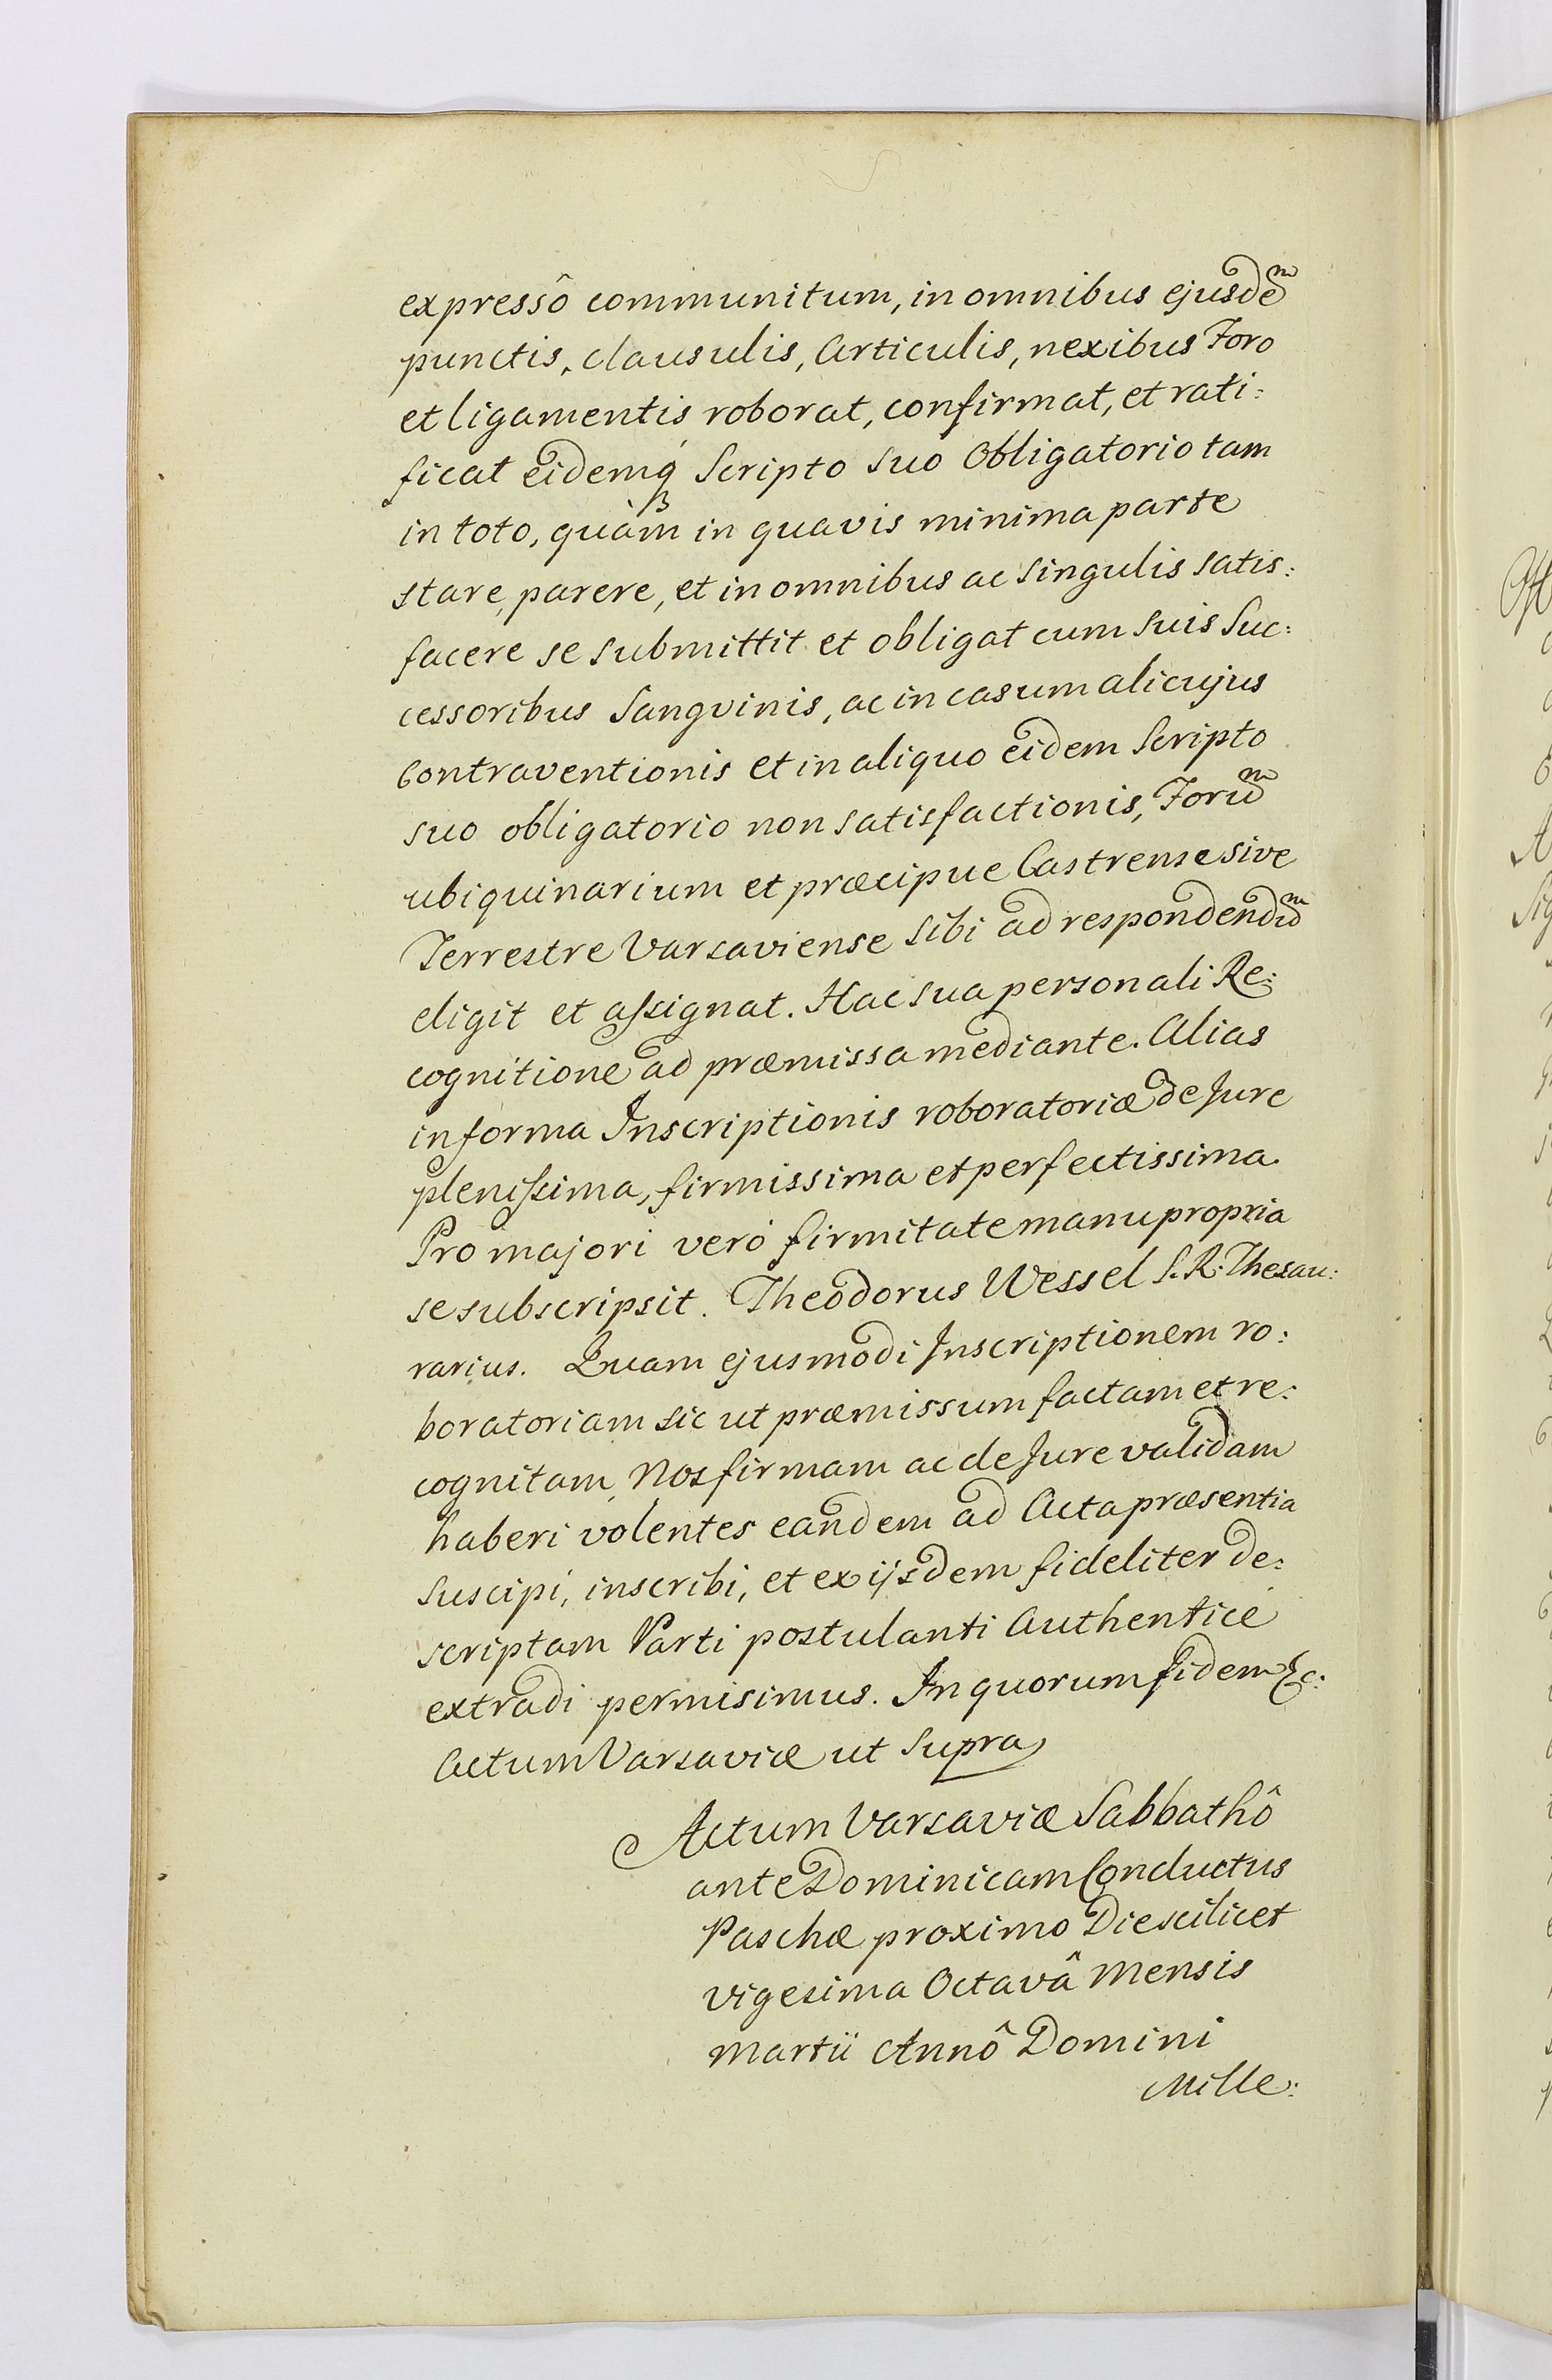 expressô communitum, in omnibus ejusdem
punctis, clausulis, Articulis, nexibus Foro
et ligamentis roborat, confirmat, et rati:
ficat eidemq́ Scripto suo Obligatorio tam
in toto, quàm in quavis minima parte
stare, parere, et in omnibus ac singulis satis:
facere se submittit et obligat cum suis Suc:
cessoribus Sangvinis, ac in casum alicujus
Contraventionis et in aliquo eidem Scripto
suo obligatorio non satisfactionis, Forum
ubiquinarium et præcipue Castrense sive
Terrestre Varsaviense sibi ad respondendum
eligit et assignat. Hac sua personali Re:
cognitione ad præmissa mediante. Alias
in forma Inscriptionis roboratoriæ de Jure
plenissima, firmissima et perfectissima.
Pro majori veró firmitate manu propria
se subscripsit. Theodorus Wessel S. R: Thesau:
rarius. Quam ejusmodi Inscriptionem ro:
boratoriam sic ut præmissum factam et re:
cognitam, Nos firmam ac de Jure validam
haberi volentes eandem ad Acta præsentia
suscipi, inscribi, et ex ijsdem fideliter de:
scriptam Parti postulanti Authenticé
extradi permisimus. In quorum fidem &c:
Actum Varsaviæ ut supra
Actum Varsaviæ Sabbathô
ante Dominicam Conductus
Paschæ proximo Die scilicet
vigesima Octavâ Mensis
Martii Annô Domini
Mille: